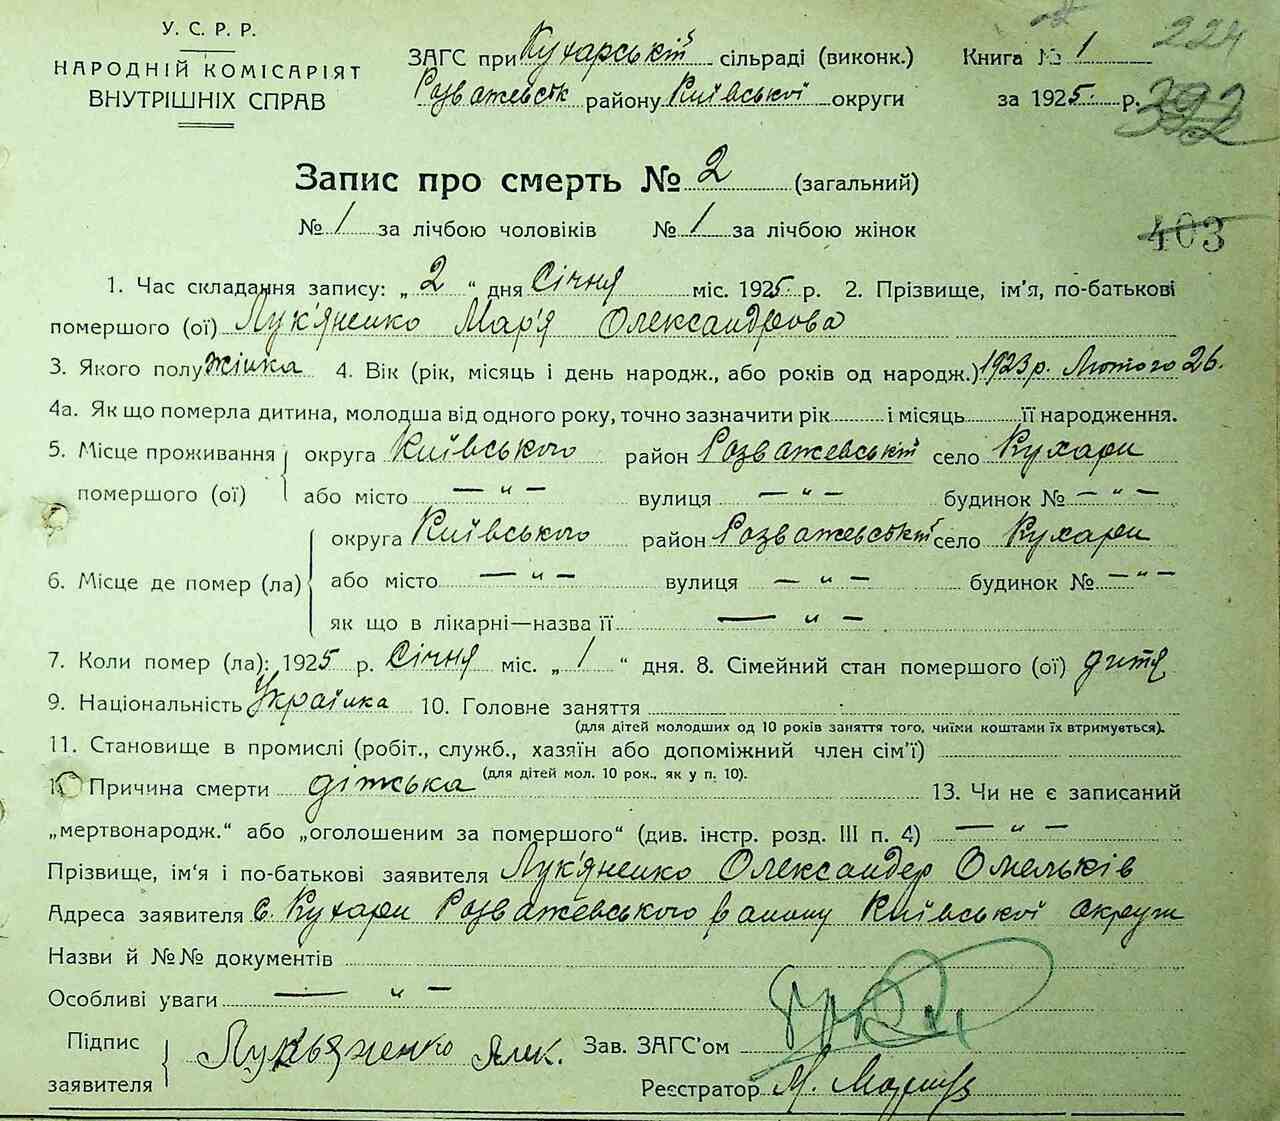 У. С. Р. Р.
НАРОДНІЙ КОМІСАРІЯТ
ВНУТРІШНІХ СПРАВ
ЗАГС при Кухарській сільраді (виконк.)
Розважевськ району Київської округи
Книга № 1
за 1925 р.
224
392
403
Запис про смерть № 2 (загальний)
№ 1 за лічбою чоловіків № 1 за лічбою жінок
1. Час складання запису: „ 2 “ дня Січня міс. 1925 р. 2. Прізвище, ім’я, по-батькові
помершого (ої) Лук’яненко Мар’я Олександрова
3. Якого полу жінка 4. Вік (рік, місяць і день народж., або років од народж.) 1923 р. Лютого 26.
4а. Як що померла дитина, молодша від одного року, точно зазначити рік і місяць її народження.
5. Місце проживання округа Київського район Розважевській село Кухари
помершого (ої) або місто — „ — вулиця — „ — будинок № — „ —
округа Київського район Розважевській село Кухари
6. Місце де помер (ла) або місто — „ — вулиця — „ — будинок № — „ —
як що в лікарні—назва її — „ —
7. Коли помер (ла): 1925 р. Січня міс. „ 1 “ дня. 8. Сімейний стан помершого (ої) дитя
9. Національність Українка 10. Головне заняття
(для дітей молодших од 10 років заняття того, чиїми коштами їх втримується).
11. Становище в промислі (робіт., служб., хазяїн або допоміжний член сім’ї)
(для дітей мол. 10 рок., як у п. 10).
Причина смерти дітська 13. Чи не є записаний
„мертвонародж.“ або „оголошеним за помершого“ (див. інстр. розд. III п. 4) — „ —
Прізвище, ім’я і по-батькові заявителя Лук’яненко Олександер Омельків
Адреса заявителя с. Кухари Розважевського району Київської округи
Назви й №№ документів
Особливі уваги — „ —
Підпис
заявителя Лукьяненко Алек.
Зав. ЗАГС’ом
Реєстратор М.